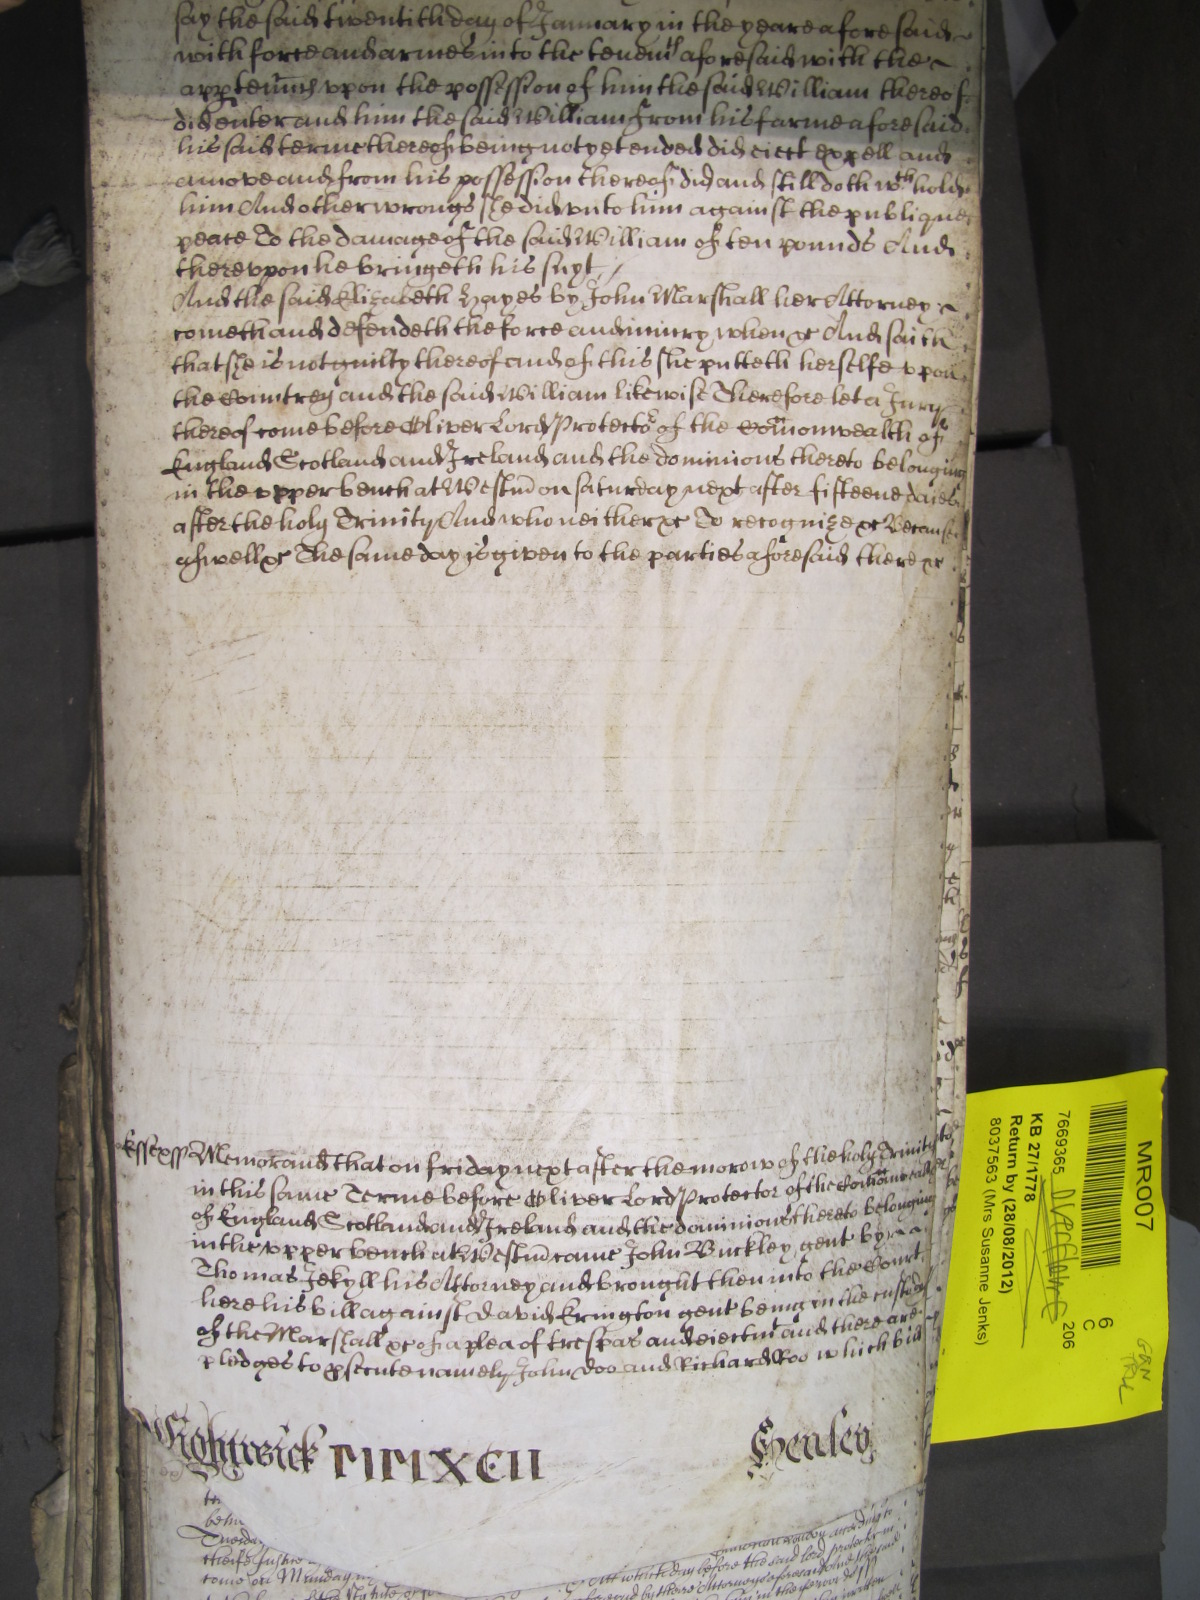 say the said twentith day of January in the yeare aforesaid
with force and armes into the tenemts aforesaid with the
apptenncs vpon the possession of him the said William thereof
did enter and him the said William from his farme aforesaid
his said terme thereof being not yet ended did eiect expell and
amove and from his possession thereof did and still doth wth hold
him And other wrongs she did vnto him against the publique
peace To the damage of the said William of ten pounds And
therevpon he bringeth his suyt
And the said Elizabeth Hayes by John Marshall her Attorney
cometh and defendeth the force and iniury when &c And saith
that she is not guilty thereof and of this she putteth herselfe vpon
the Countrey and the said William likewise Therefore let a Jury
thereof come before Oliver Lord Protector of the Comonwealth of
England Scotland and Ireland and the dominions thereto belonging
in the vpper bench at Westm on saturday next after fifteene daies
after the holy Trinity And who neither &c To recognize &c Because
aswell &c The same day is given to the parties aforesaid there &c
Essex ss Memorand that on friday next after the morow of the holy Trinity
in this same Terme before Oliver Lord Protector of the Comonwealth
of England Scotland and Ireland and the dominions thereto belonging
in the vpper bench at Westm came John Buckley gent by
Thomas Jekyll his Attorney and brought then into the Court
here his bill against David Erington gent being in the custody
of the Marshall &c of a plea of trespas and eiectmt and there are
pledges to psecute namely John Doo and Richard Roo which bill
Wightwick MMXCII Henley
Tuesday
come on Munday
At which day before the said lord protector
MR007
6
C
7669365 206
KB 27/1778
Return by (28/08/2012)
8037563 (Mrs Susanne Jenks)